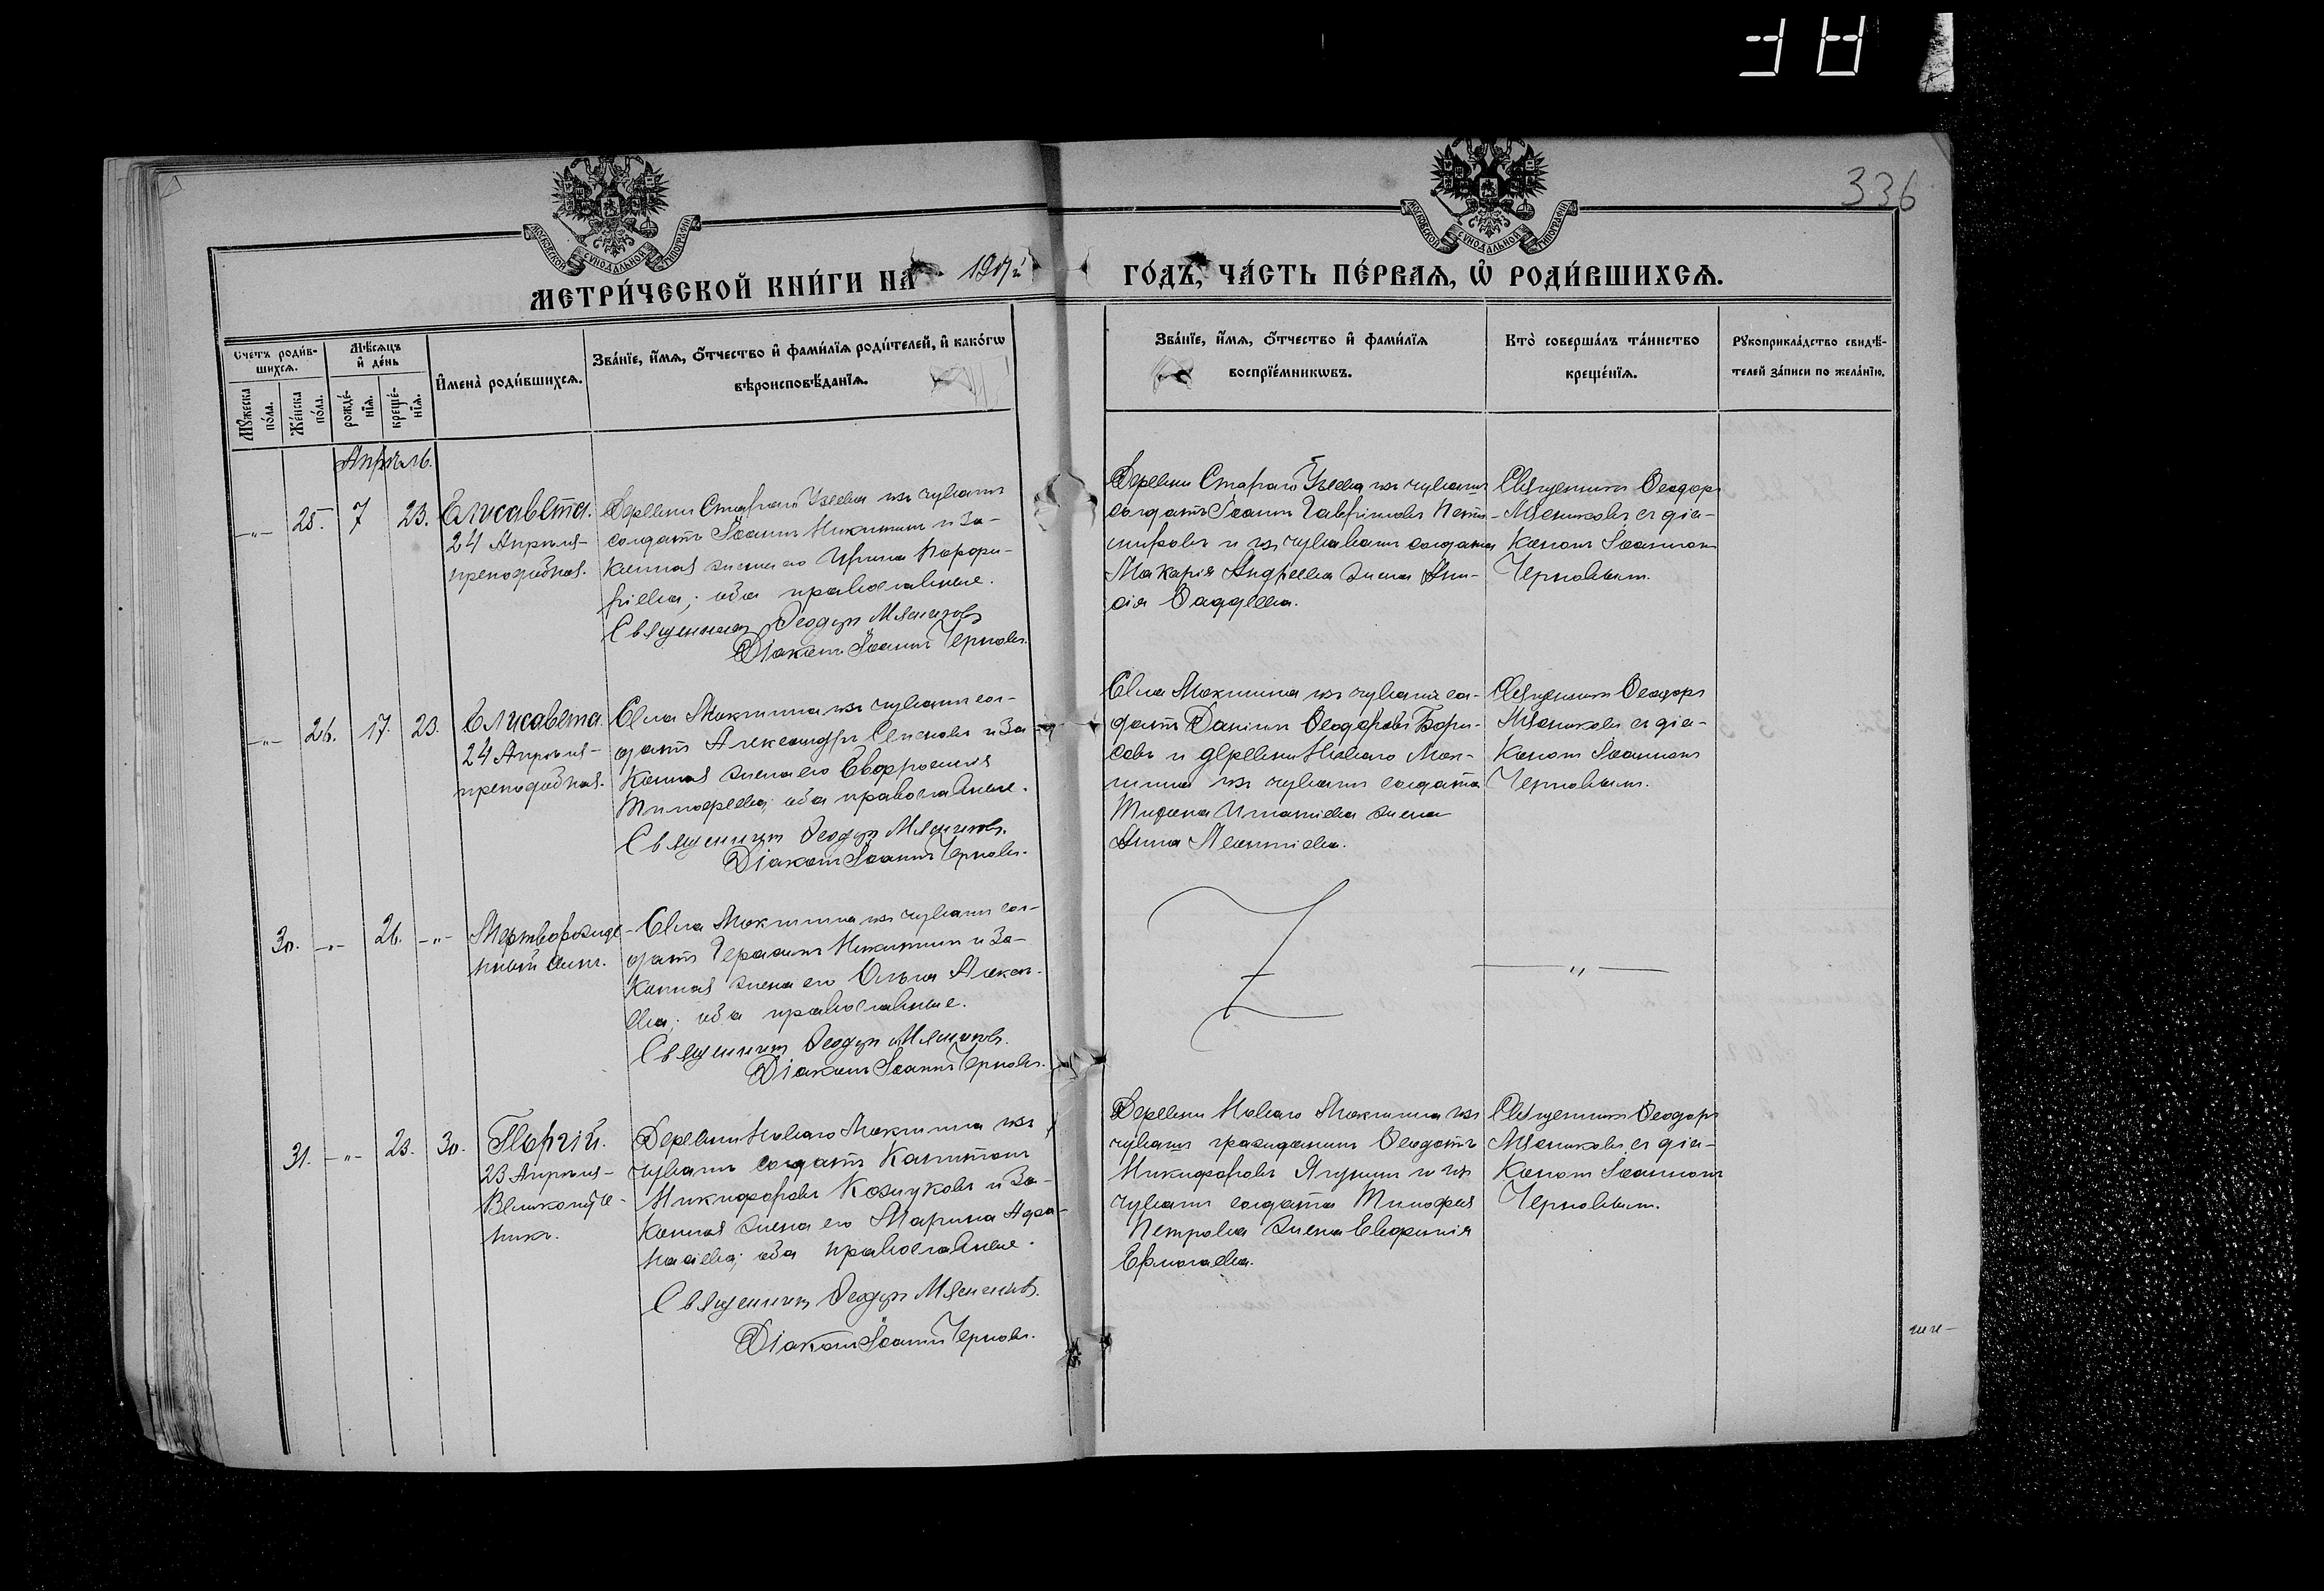 336
МОСКОВСКОЙ СѴНОДАЛЬНОЙ ТИПОГРАФІИ
МОСКОВСКОЙ СѴНОДАЛЬНОЙ ТИПОГРАФІИ
МЕТРИ́ЧЕСКОЙ КНИ́ГИ НА 1917й ГО́ДЪ, ЧА́СТЬ ПЕ́РВАЯ, Ѽ РОДИ́ВШИХСЯ.
Счетъ роди́в-
шихся.
Мꙋжеска по́ла.
Же́нска по́ла.
Мѣ́сяцъ и҆ де́нь
рожде́-
нїя.
креще́-
нїя.
И҆мена̀ роди́вшихся.
Зва́нїе, и҆́мя, ѻ҆́тчество и҆ фами́лїя роди́телей, и҆ како́гѡ
вѣроисповѣ́данїя.
Зва́нїе, и҆́мя, ѻ҆́тчество и҆ фами́лїя
воспрїе́мникѡвъ.
Кто̀ соверша́лъ та́инство
креще́нїя.
Рꙋкоприкла́дство свидѣ́-
телей за́писи по жела́нїю.
Апрѣль.
-„- 25. 7 23.
Елисавета.
24 Апрѣля-
преподобная.
Деревни Стараго Узеева изъ чувашъ
солдатъ Іоаннъ Никитинъ и за-
конная жена его Ирина Порфи-
ріева; оба православные.
Священникъ Ѳеодоръ Мясниковъ
Діаконъ Іоаннъ Черновъ.
Деревни Стараго Узеева изъ чувашъ
солдатъ Іоаннъ Гавріиловъ
и изъ чувашъ солдата
Макарія Андреева жена Ани-
сія Ѳаддеева.
Священникъ Ѳеодоръ
Мясниковъ съ діа-
кономъ Іоанномъ
Черновымъ.
-„- 26. 17. 23.
Елисавета.
24 Апрѣля-
преподобная.
Села Мокшина изъ чувашъ сол-
датъ Александръ Семеновъ и за-
конная жена его Евфросинія
Тимофеева; оба православные.
Священникъ Ѳеодоръ Мясниковъ.
Діаконъ Іоаннъ Черновъ.
Села Мокшина изъ чувашъ сол-
датъ Даніилъ Ѳеодоровъ Бори-
совъ и деревни Новаго Мок-
шина изъ чувашъ солдата
Тифона Игнатіева жена
Анна Леонтіева.
Священникъ Ѳеодоръ
Мясниковъ съ діа-
кономъ Іоанномъ
Черновымъ.
30. -„- 26. -„-
Мертворожде-
нный сынъ.
Села Мокшина изъ чувашъ сол-
датъ Герасимъ Никитинъ и за-
конная жена его Ольга Алексе-
ева; оба православные.
Священникъ Ѳеодоръ Мясниковъ.
Діаконъ Іоаннъ Черновъ.
„
31. -„- 23. 30.
Георгій.
23 Апрѣля-
Великомуче-
никъ.
Деревни Новаго Мокшина изъ
чувашъ солдатъ Капитонъ
Никифоровъ Козиуковъ и за-
конная жена его Марина Афа-
насіева; оба православные.
Священникъ Ѳеодоръ Мясниковъ.
Діаконъ Іоаннъ Черновъ.
Деревни Новаго Мокшина изъ
чувашъ гражданинъ Ѳеодотъ
Никифоровъ Ягунинъ и изъ
чувашъ солдата Тимофея
Петрова жена Евфимія
Ермолаева.
Священникъ Ѳеодоръ
Мясниковъ съ діа-
кономъ Іоанномъ
Черновымъ.